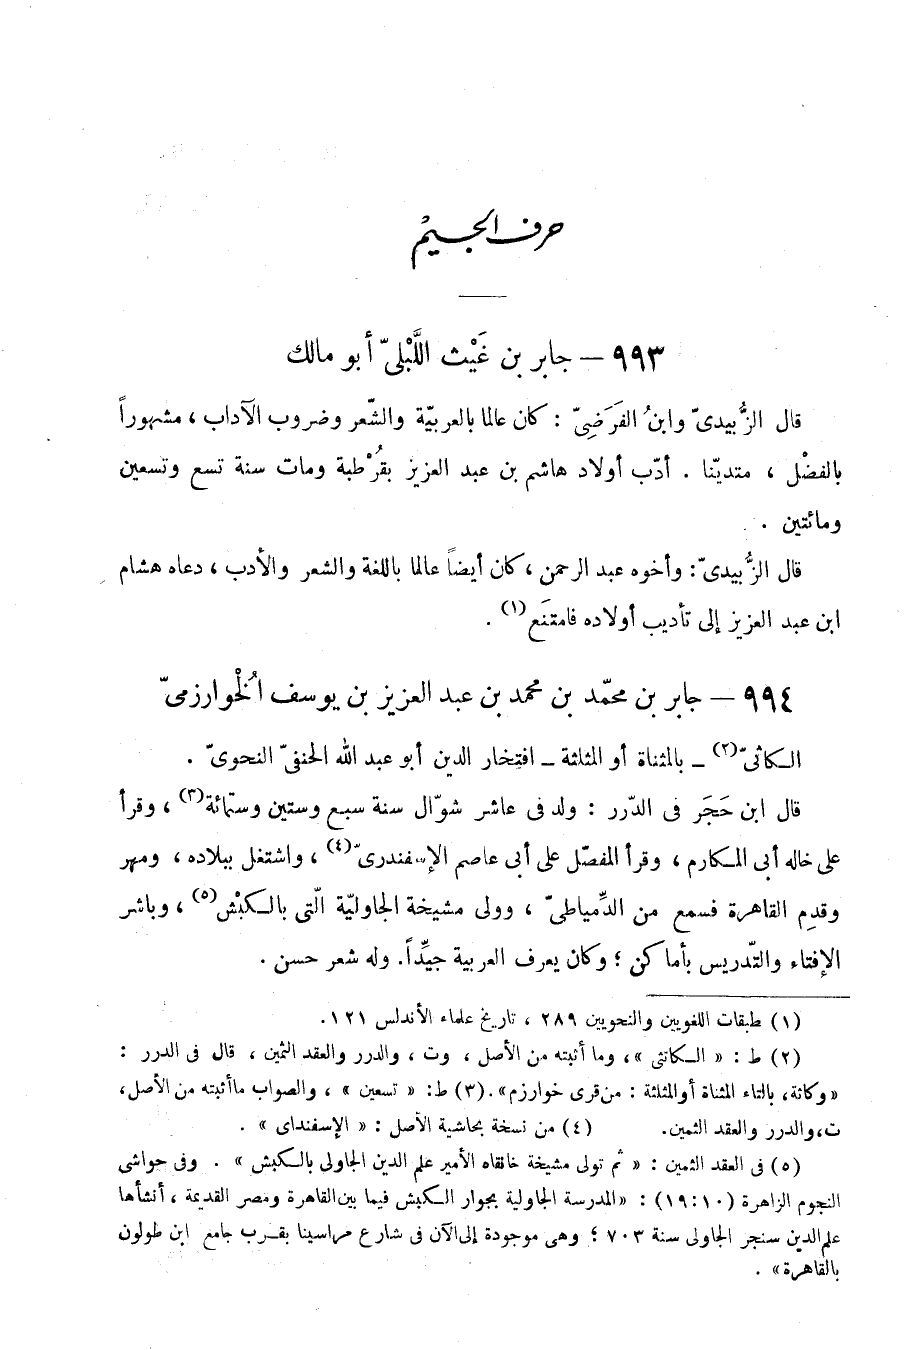 حرف الجيمْ
٩٩٣ — جابر بن غَيْث اللَّبْلىّ أبو مالك
قال الزُّبيدىّ وابنُ الفَرَضِىّ : كان عالما بالعربيّة والشّعر وضروب الآداب ، مشهوراً
بالفضْل ، متديّنا . أدّب أولاد هاشم بن عبد العزيز بقُرْطبة ومات سنة تسع وتسعين
ومائتين .
قال الزُّبيدىّ: وأخوه عبد الرحمن ، كان أيضاً عالما باللغة والشعر والأدب ، دعاه هشام
ابن عبد العزيز إلى تأديب أولاده فامتنَع (١) .
٩٩٤ — جابر بن محمّد بن محمد بن عبد العزيز بن يوسف الُخْوارزمىّ
الكاثىّ (٢) ـ بالمثناة أو المثلثة ـ افتِخار الدين أبو عبد الله الحنفىّ النحوىّ .
قال ابن حَجَر فى الدّرر : ولد فى عاشر شوّال سنة سبع وستين وستمائة (٣) ، وقرأ
على خاله أبى المكارم ، وقرأ المفصّل على أبى عاصم الإسفندرىّ (٤) ، واشتغل ببلاده ، ومهر
وقدِم القاهرة فسمع من الدِّمياطىّ ، وولى مشيخة الجاوليّة الّتى بالكبْش (٥) ، وباشر
الإفتاء والتّدريس بأماكن ؛ وكان يعرف العربية جيِّداً. وله شعر حسن .
(١) طبقات اللغويين والنحويين ٢٨٩ ، تاريخ علماء الأندلس ١٢١.
(٢) ط : « الكاتى »، وما أثبته من الأصل ، وت ، والدرر والعقد الثمين ، قال فى الدرر :
«وكاثة، بالتاء المثناة أوالمثلثة : من قرى خوارزم». (٣) ط: « تسعين » ، والصواب ماأثبته من الأصل،
ت، والدرر والعقد الثمين. (٤) من نسخة بحاشية الأصل : « الإسفنداى » .
(٥) فى العقد الثمين : « ثم تولى مشيخة خانقاه الأمير علم الدين الجاولى بالكبش » . وفى حواشى
النجوم الزاهرة (١٠:١٩) : «المدرسة الجاولية بجوار الكبش فيما بين القاهرة ومصر القديمة ، أنشأها
علم الدين سنجر الجاولى سنة ٧٠٣ ؛ وهى موجودة إلى الآن فى شارع مراسينا بقرب جامع ابن طولون
بالقاهرة» .